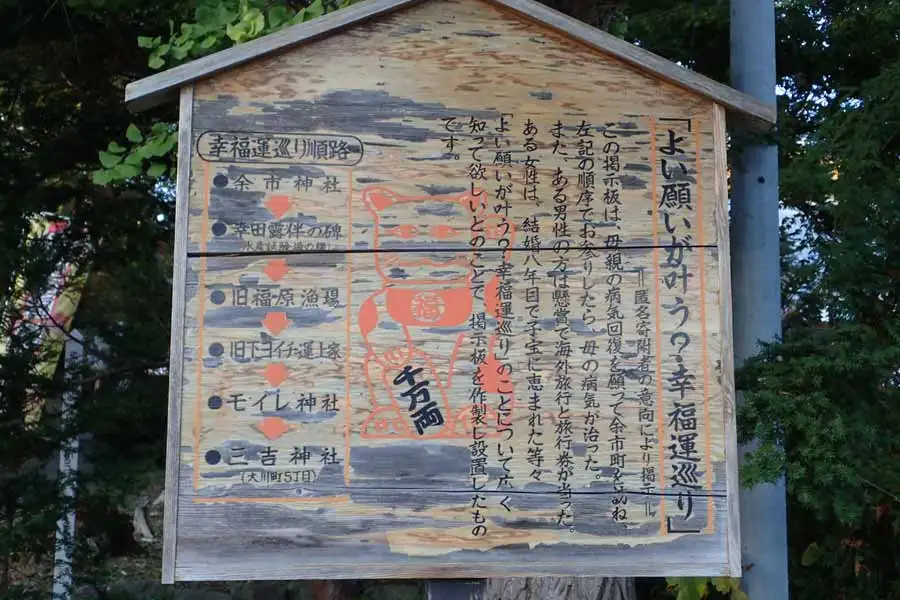 「よい願いが叶う？・幸福運巡り」
＝匿名寄附者の意向により掲示＝
この掲示板は、母親の病気回復を願って余市町を訪ね、
左記の順序でお参りしたら、母の病気が治った。
また、ある男性の方は懸賞で海外旅行と旅行券が当った。
ある女性は、結婚八年目で子宝に恵まれた等々
「よい願いが叶う？幸福運巡り」のことについて広く
知って欲しいとのことで、掲示板を作製し設置したもの
です。
福
千万両
幸福運巡り順路
●余市神社
●幸田露伴の碑
水産試験場の横
●旧福原漁場
●旧下ヨイチ運上家
●モイレ神社
●三吉神社
(大川町5丁目)